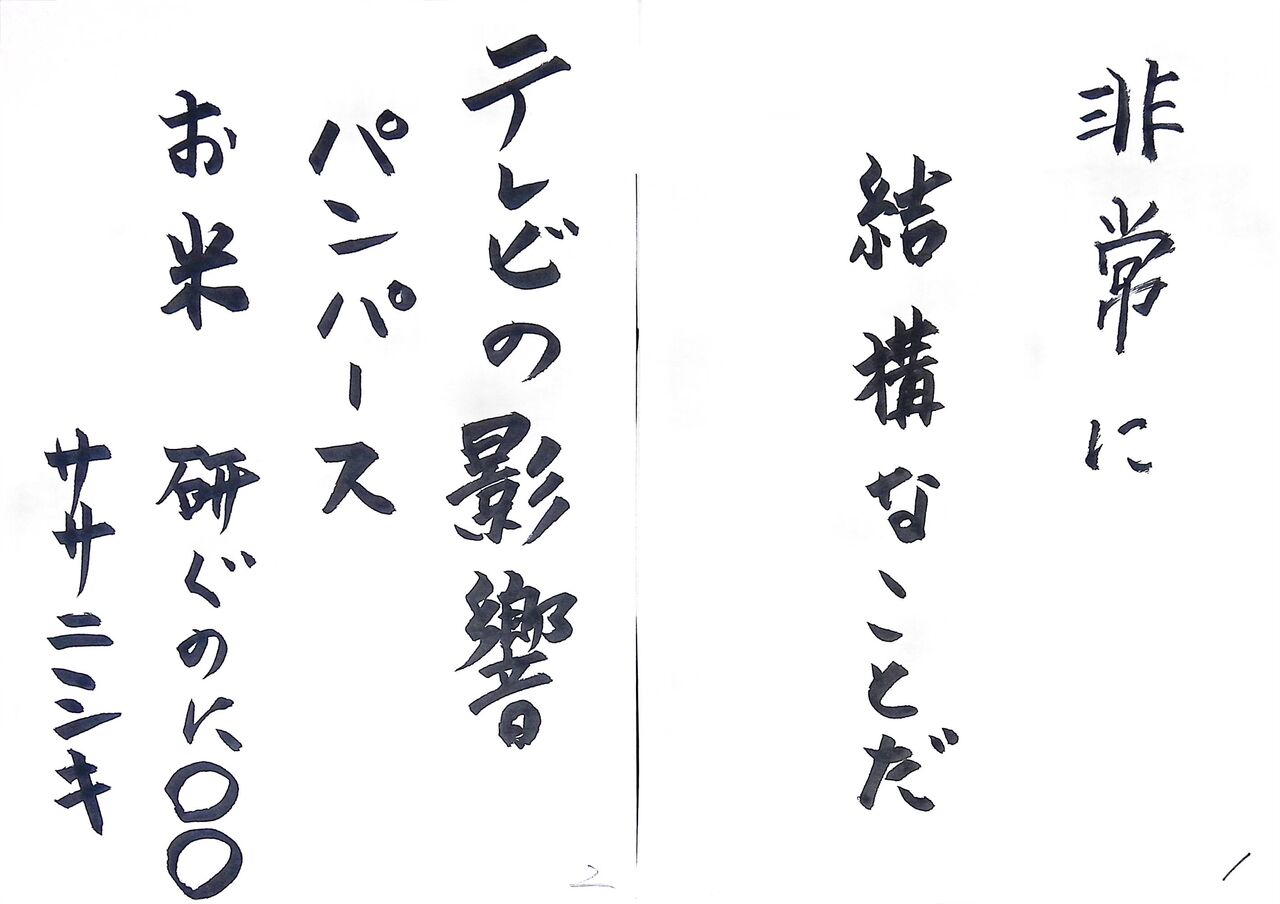 非常に
結構なことだ
1
テレビの影響
パンパース
お米 研ぐのに○○
ササニシキ
2